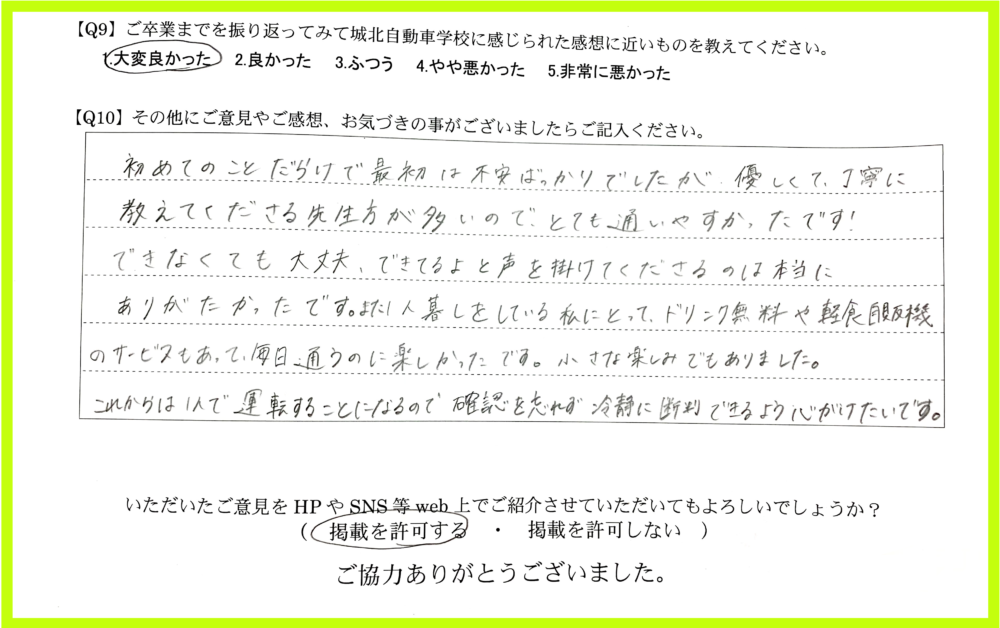 【Q9】ご卒業までを振り返ってみて城北自動車学校に感じられた感想に近いものを教えてください。
1.大変良かった 2.良かった 3.ふつう 4.やや悪かった 5.非常に悪かった
【Q10】その他にご意見やご感想、お気づきの事がございましたらご記入ください。
初めてのことだらけで最初は不安ばっかりでしたが、優しくて、丁寧に
教えてくださる先生方が多いので、とても通いやすかったです!
できなくても大丈夫、できてるよと声を掛けてくださるのは本当に
ありがたかったです。また1人暮しをしている私にとって、ドリンク無料や軽食自販機
のサービスもあって、毎日通うのに楽しかったです。小さな楽しみでもありました。
これからは1人で運転することになるので確認を忘れず冷静に断判できるよう心がけたいです。
いただいたご意見をHPやSNS等web上でご紹介させていただいてもよろしいでしょうか?
( 掲載を許可する ・ 掲載を許可しない )
ご協力ありがとうございました。